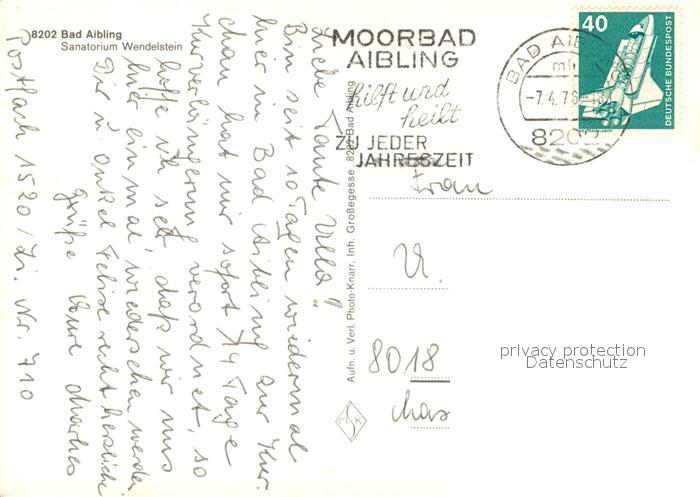 8202 Bad Aibling
Sanatorium Wendelstein
Liebe Tante Ulla"
Bin seit 10 Tagen wiedermal
hier in Bad Aibling zur Kur.
chon hat mir sofort 14 Tage
Kurverlängerung verordnet, so
hoffe ich sehr, daß wir uns
hier einmal wiedersehen werden
Dir u. Onkel recht herzliche
Grüße
Postfach 1520 / Zi. Nr. 710
Aufn. u. Verl. Photo-Knarr, Inh. Großegesse, 8202 Bad Aibling
MOORBAD
AIBLING
hilft und
heilt
ZU JEDER
JAHRESZEIT
BAD AIB
-7.4.76
8202
40
DEUTSCHE BUNDESPOST
Frau
U.
8018
privacy protection
Datenschutz